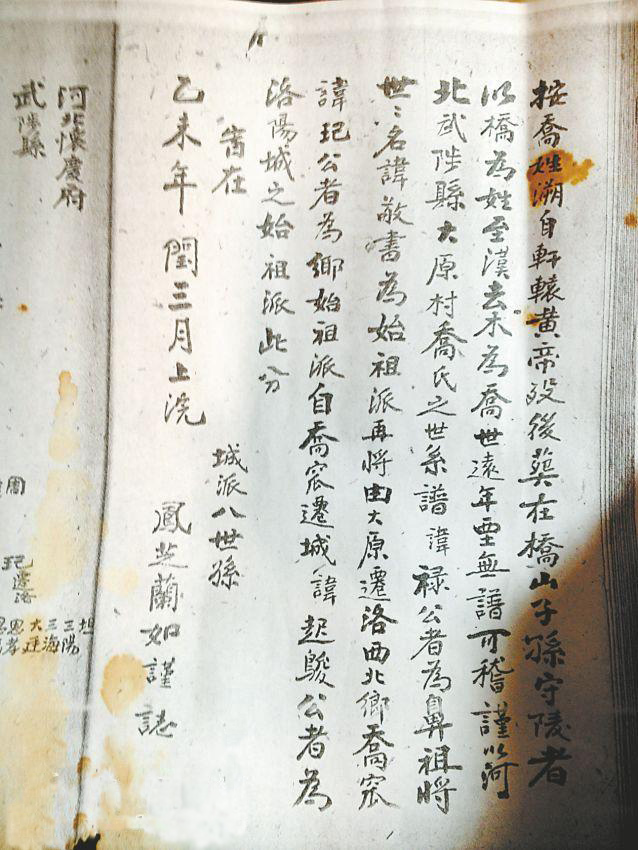 按喬姓溯自軒轅黄帝殁後葬在橋山子孫守陵者
以橋為姓至漢去木為喬世遠年堙無譜可稽謹以河
北武陟縣大原村喬氏之世系譜諱祿公者為鼻祖將
世〻名諱敬書為始祖派再將由大原遷洛西北鄉喬窑
諱玘公者為鄉始祖派自喬窑遷城諱起駿公者為
洛陽城之始祖派此分
旹在
城派八世孫
乙未年閏三月上浣
鳳芝蘭如謹誌
河北懷慶府
武陟縣
玘遷洛